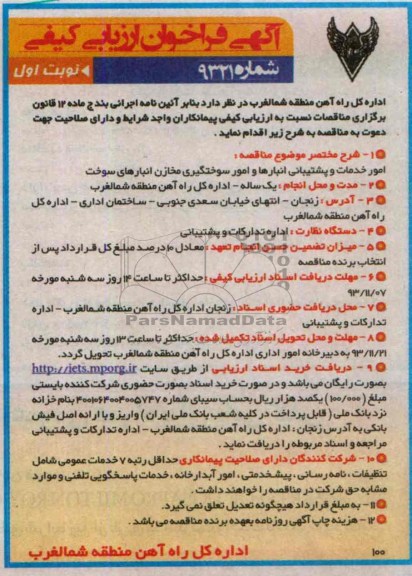 آگهی فراخوان ارزیابی کیفی
شماره ۹۳۲۱
نوبت اول
اداره کل راه آهن منطقه شمالغرب در نظر دارد بنابر آئین نامه اجرائی بندج ماده ۱۲ قانون
برگزاری مناقصات نسبت به ارزیابی کیفی پیمانکاران واجد شرایط و دارای صلاحیت جهت
دعوت به مناقصه به شرح زیر اقدام نماید .
۱- شرح مختصر موضوع مناقصه :
امور خدمات و پشتیبانی انبارها و امور سوختگیری مخازن انبارهای سوخت
۲- مدت و محل انجام : یک ساله - اداره کل راه آهن منطقه شمالغرب
۳- آدرس : زنجان - انتهای خیابان سعدی جنوبی - ساختمان اداری - اداره کل
راه آهن منطقه شمالغرب
۴- دستگاه نظارت : اداره تدارکات و پشتیبانی
۵- میزان تضمین حسن انجام تعهد : معادل ۱۰ درصد مبلغ کل قرارداد پس از
انتخاب برنده مناقصه
۶- مهلت دریافت اسناد ارزیابی کیفی : حداکثر تا ساعت ۱۴ روز سه شنبه مورخه
۹۳/۱۱/۰۷
۷- محل دریافت حضوری اسناد : زنجان اداره کل راه آهن منطقه شمالغرب - اداره
تدارکات و پشتیبانی
ParsNamadData
۸- مهلت و محل تحویل اسناد تکمیل شده : حداکثر تا ساعت ۱۳ روز سه شنبه مورخه
۹۳/۱۱/۲۱ به دبیرخانه امور اداری اداره کل راه آهن منطقه شمالغرب تحویل گردد.
۹- دریافت خرید اسناد ارزیابی از طریق سایت http://iets.mporg.ir
بصورت رایگان می باشد و در صورت خرید اسناد بصورت حضوری شرکت کننده بایستی
مبلغ (۱۰۰/۰۰۰) یکصد هزار ریال بحساب سیبای شماره ۴۰۰۱۰۶۴۰۰۴۰۰۵۷۴۷ بنام خزانه
نزد بانک ملی ( قابل پرداخت در کلیه شعب بانک ملی ایران ) واریز و با ارائه اصل فیش
بانکی به آدرس زنجان : اداره کل راه آهن منطقه شمالغرب - اداره تدارکات و پشتیبانی
مراجعه و اسناد مربوطه را دریافت نماید .
۱۰- شرکت کنندگان دارای صلاحیت پیمانکاری حداقل رتبه ۷ خدمات عمومی شامل
تنظیفات ، نامه رسانی ، پیشخدمتی ، امور آبدارخانه ، خدمات پاسخگویی تلفنی و موارد
مشابه حق شرکت در مناقصه را خواهند داشت .
۱۱- به مبلغ قرارداد هیچگونه تعدیل تعلق نمی گیرد.
۱۲- هزینه چاپ آگهی روزنامه بعهده برنده مناقصه می باشد .
اداره کل راه آهن منطقه شمالغرب
۱۰۰